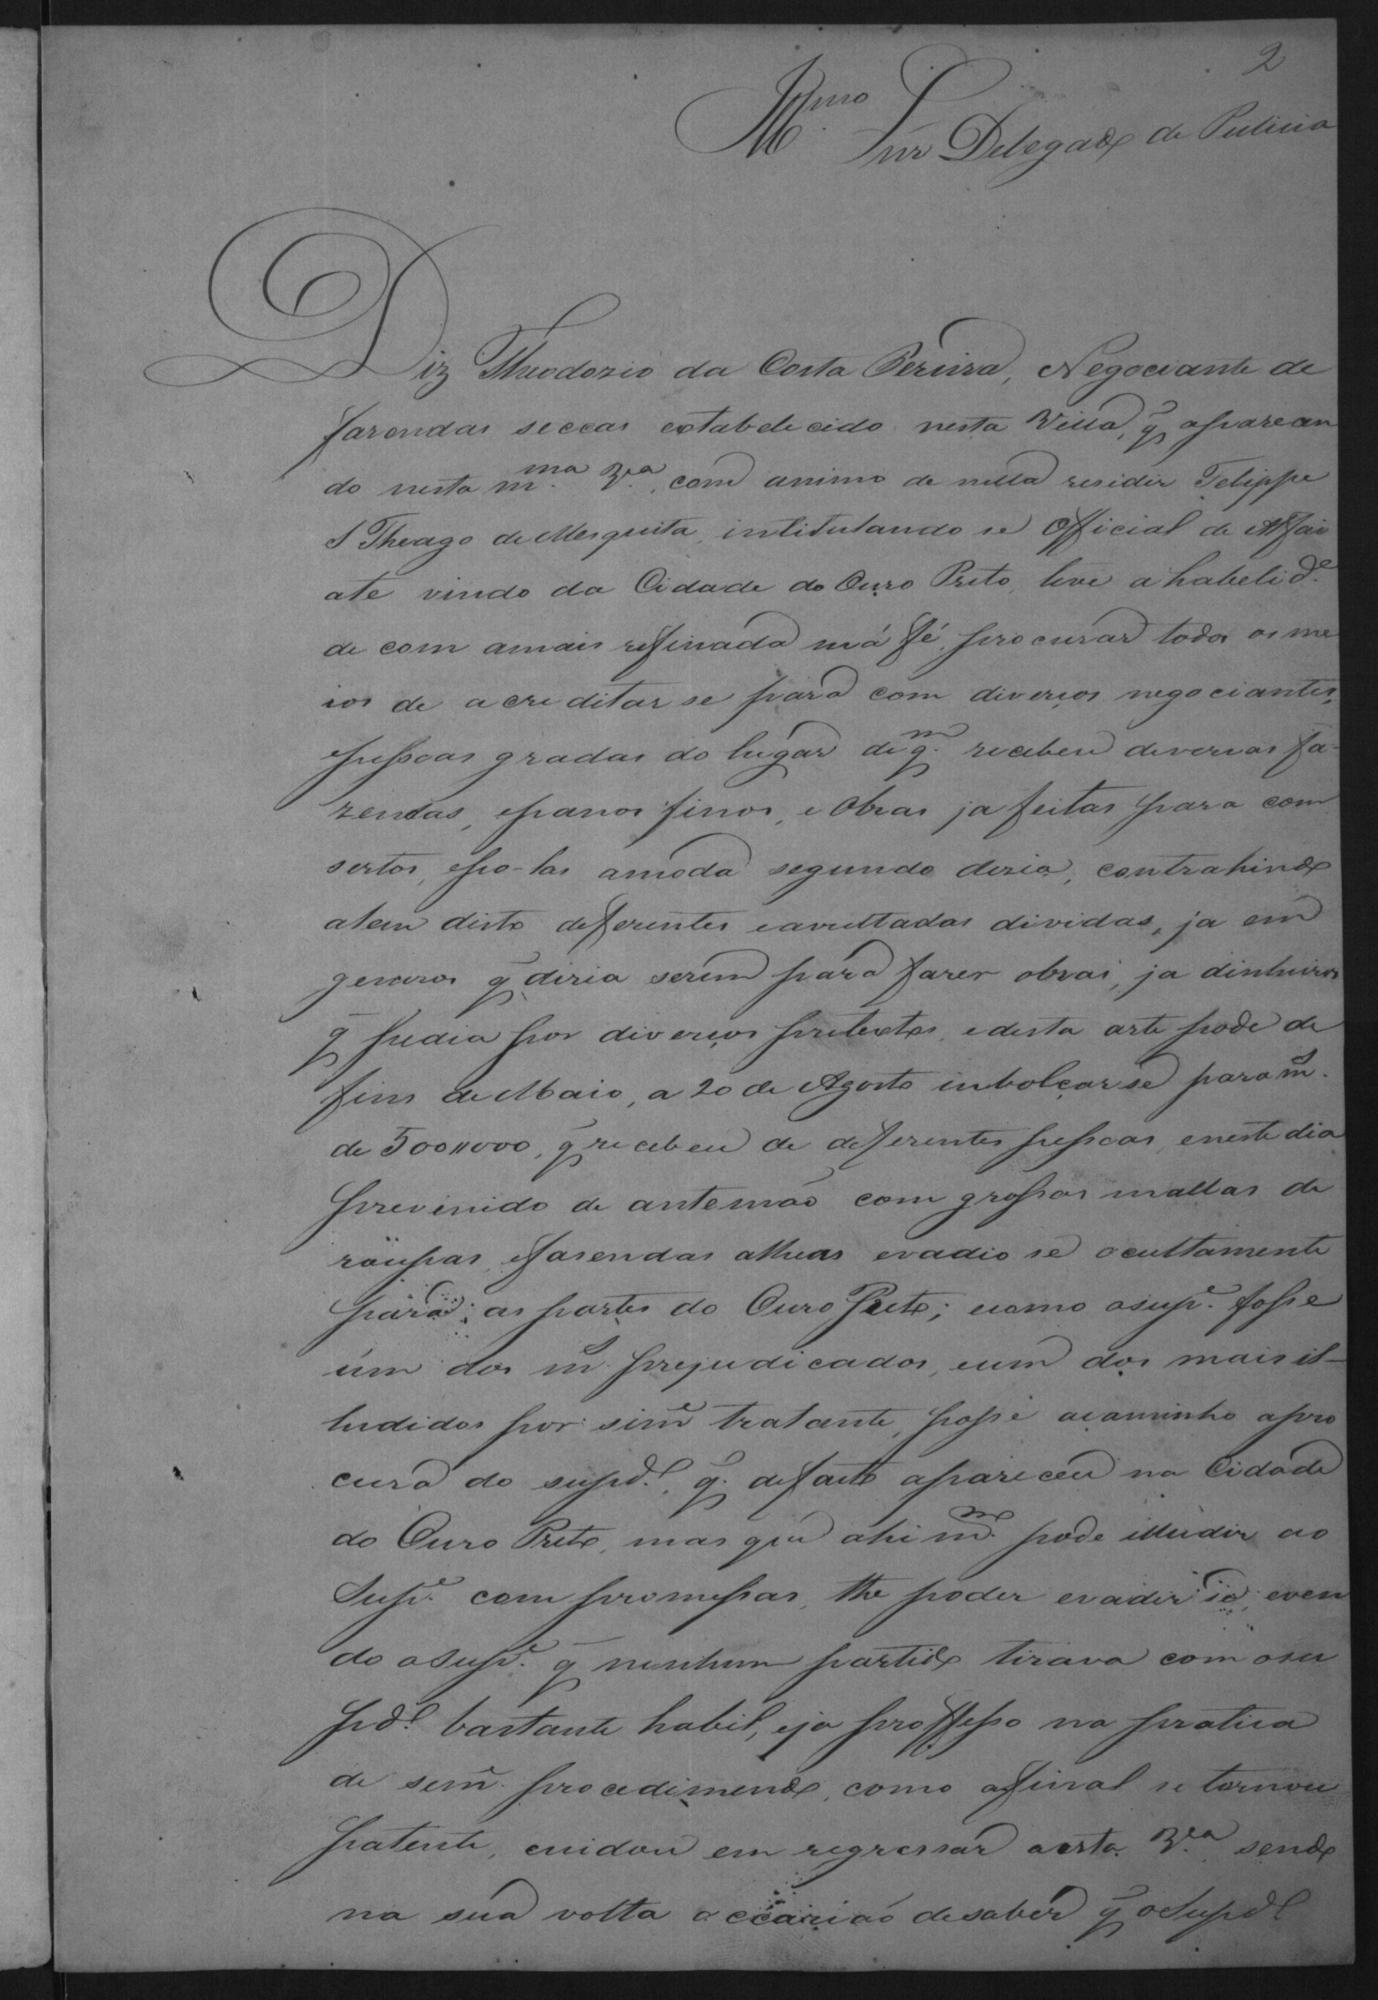 2
Illmo Snr Delegado de Pulicia
Diz Theodozio da Costa Pereira, Negociante de
farendas seccas estabelecido nesta Villa, q̃ aparecen
do nesta m.ma V.ª, com animo de nella residir Felippe
S Theago de Mesquita, intitulando se Official de Alfai
ate vindo da Cidade do Ouro Preto, teve a habelid.e
de com amais refinada má fé, procurar todos os me
ios de acreditar se para com diverços negociantes,
epessoas gradas do lugar de q.m recebeu diversas fa-
zendas, epanos finos, e Obras ja feitas para com
sertos, epo-las amoda segundo dizia, contrahindo
alem disto deferentes eavultadas dividas, ja em
generos q̃ dizia serem para fazer obras, ja dinheiros
q̃ pedia por diverços pretextos, edesta arte pode de
fins de Maio, a 20 de Agosto imbolçarse para m.s
de 500#000, q̃ recebeu de deferentes pessoas, eneste dia
prevenido de antemão com grossas mallas de
roupas, efasendas alheas evadio se occultamente
para as partes do Ouro Preto; ecomo osup.e fosse
um dos m.s prejudicados, eum dos mais il-
ludidos por sim.e tratante, posse acaminho apro
cura do supd.º, q̃. defacto apareceu na Cidade
do Ouro Preto, mas que ahi m.mo pode illudir ao
Sup.e com promessas, the poder evadir se, even
do oSup.e q̃ nenhum partido tirava com osu
pd.º bastante habil, eja professo na pratica
de sem.e procedimento, como afinal se tornou
patente, cuidou em regressar aesta V.ª sendo
na sua volta occasião desaber q̃ oSupd.º